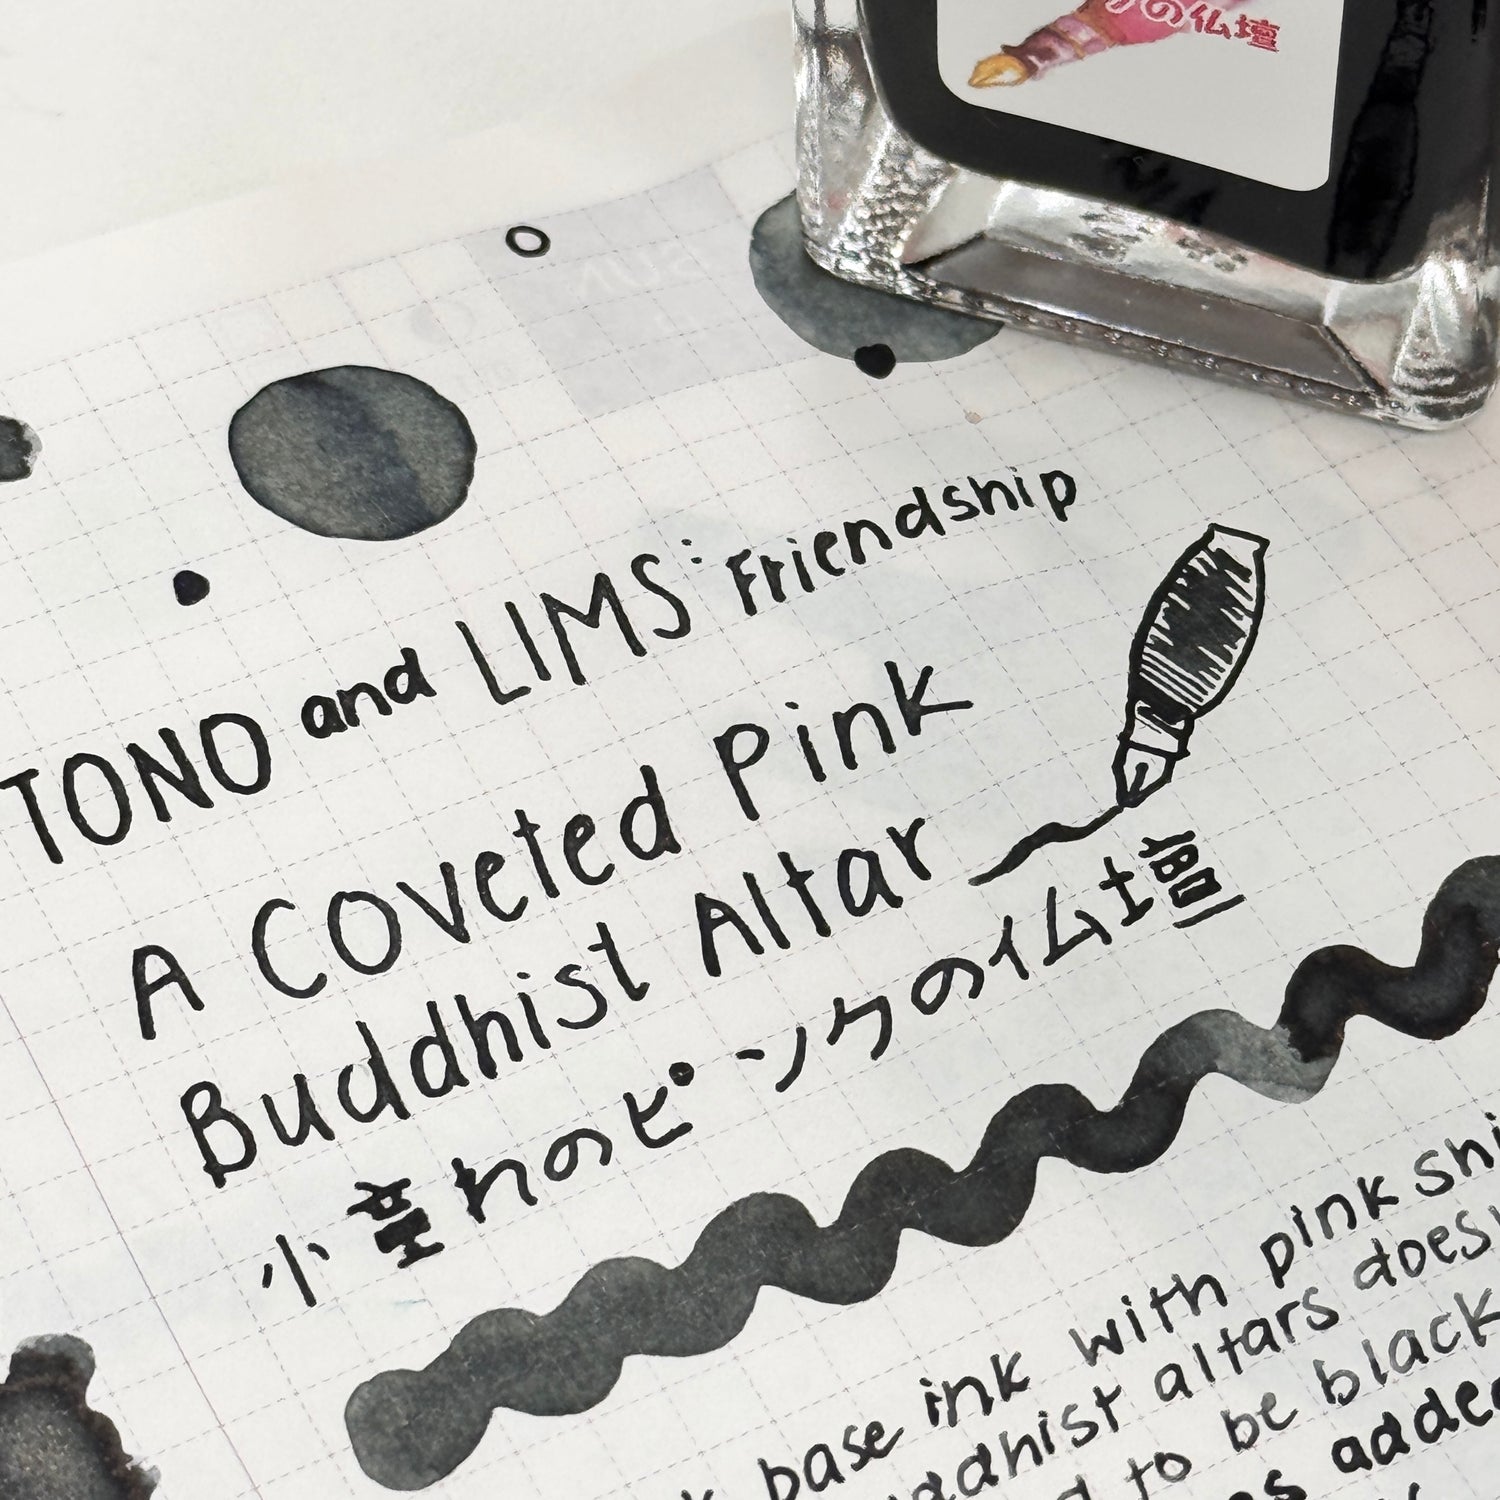 の仏壇
TONO and LIMS: Friendship
A Coveted Pink
Buddhist Altar
憧れのピンクの仏壇
base ink with pink
altars
to be black
added